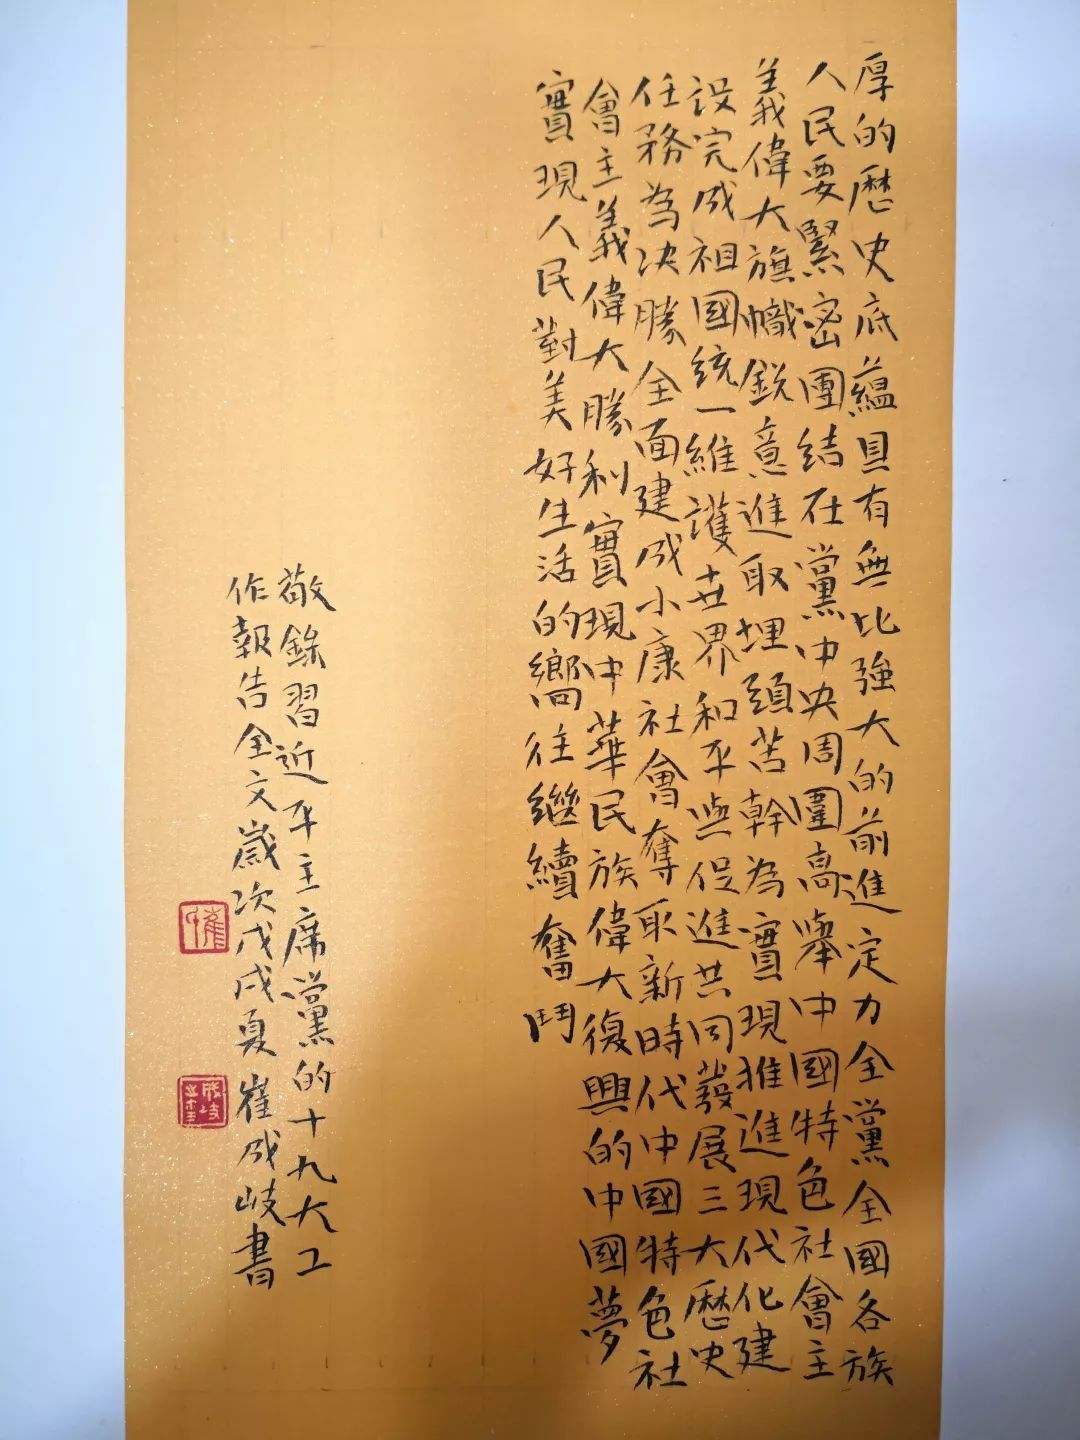 厚的歷史底蘊具有無比強大的前進定力全黨全國各族
人民要緊密團結在黨中央周圍高舉中國特色社會主
義偉大旗幟銳意進取埋頭苦幹為實現推進現代化建
設完成祖國統一維護世界和平與促進共同發展三大歷史
任務為决勝全面建成小康社會奪取新時代中國特色社
會主義偉大勝利實現中華民族偉大復興的中國夢
實現人民對美好生活的嚮往繼續奮鬥
敬錄習近平主席黨的十九大工
作報告全文歲次戊戌夏崔成岐書
崔